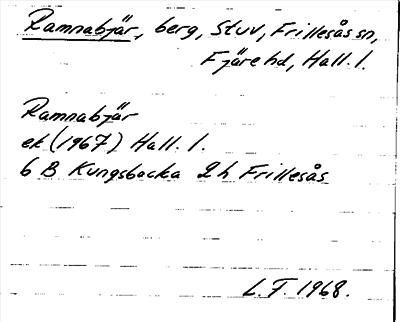 Ramnabjär, berg, Stuv, Frillesås sn,
Fjäre hd, Hall. l.
Ramnabjär
ek (1967) Hall. l.
6 B Kungsbacka 2 h Frillesås
L. F. 1968.